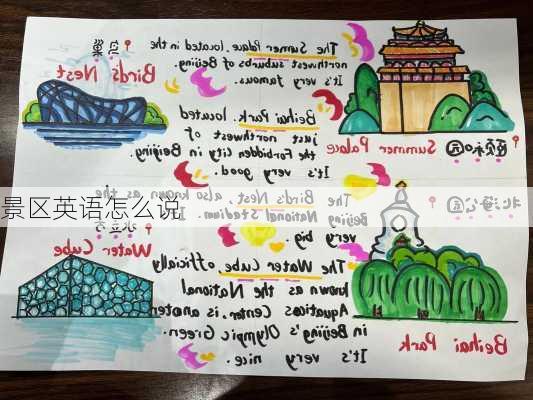 鸟巢
Bird's Nest
The Sumer Palace. located in the
northwest suburbs of Beijing.
It's very famous.
颐和园
Summer Palace
Beihai Park. located
just northwest of
the Forbidden City in Beijing.
It's very good.
The Bird's Nest. also known as the
Beijing National Stadium.
very big.
景区英语怎么说
北海公园
Beihai Park
Water Cube
The Water Cube. officially
known as the National
Aquatics Center, is anoter
in Beijing's Olympic Green.
It's very nice.